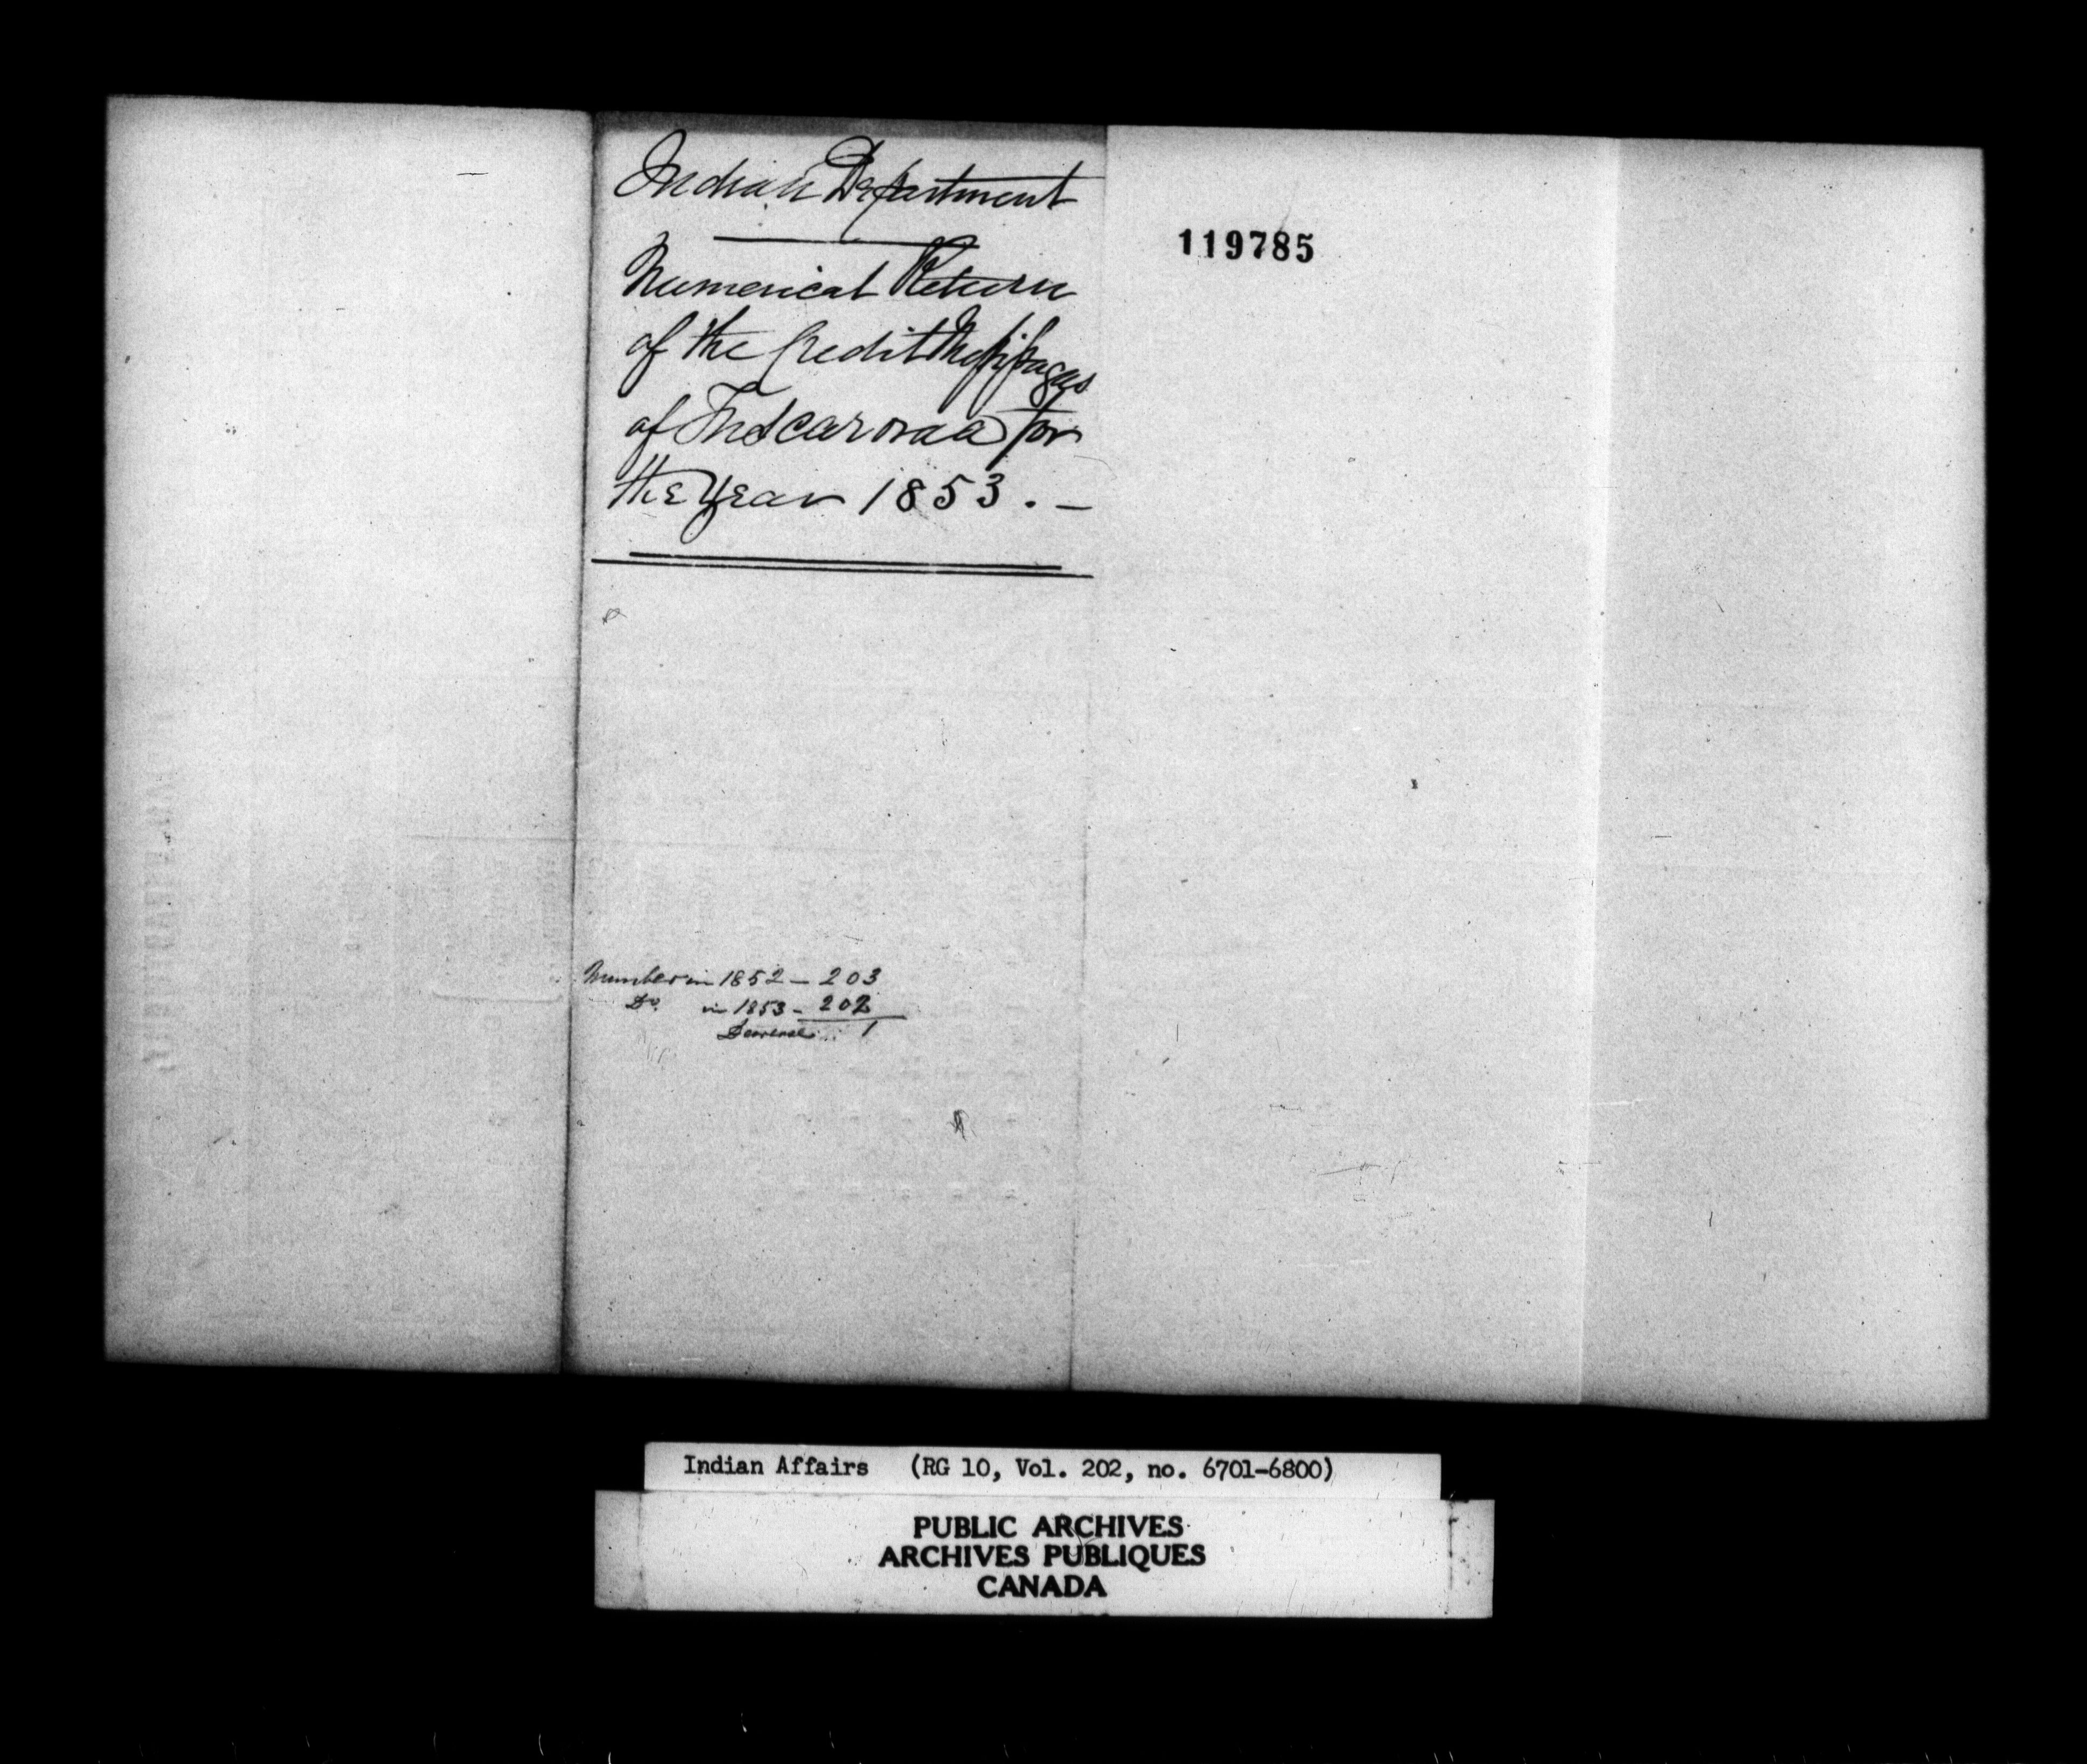 Indian Department
Numerical Return
of the Credit Messissagas
of Tuscarora for
the Year 1853. —
119785
Number in 1852 — 203
Do. in 1853 — 202
Decrease... 1
Indian Affairs (RG 10, Vol. 202, no. 6701-6800)
PUBLIC ARCHIVES
ARCHIVES PUBLIQUES
CANADA